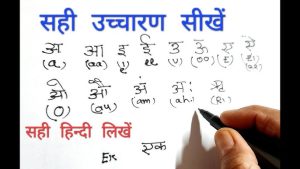 सही उच्चारण सीखें
अ आ इ ई उ ऊ ए ऐ
(a) (aa) (i) (ee) (u) (oo) (e) (ai)
ओ औ अं अः ऋ
(o) (au) (am) (ah) (Ri)
सही हिन्दी लिखें
Ek एक